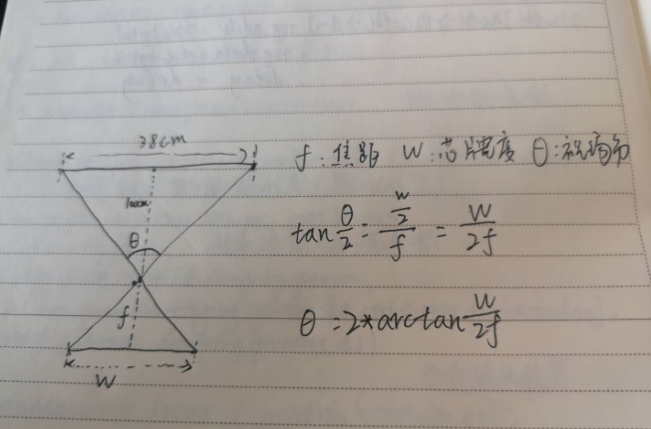 38cm
100cm
θ
f
W
f:焦距 W:芯片宽度 θ:视场角
tan θ/2 = (w/2)/f = W/2f
θ = 2*arctan W/2f